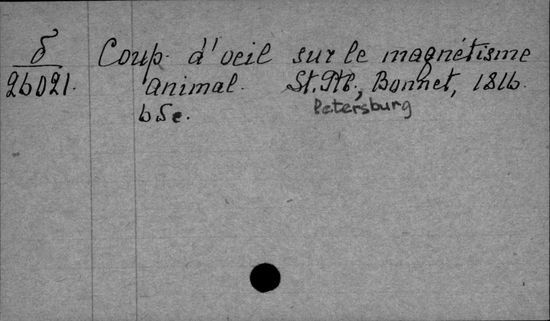 δ
26021.
Coup d'oeil sur le magnétisme
animal. St. Ptb., Bonnet, 1816.
Petersburg
6 S.